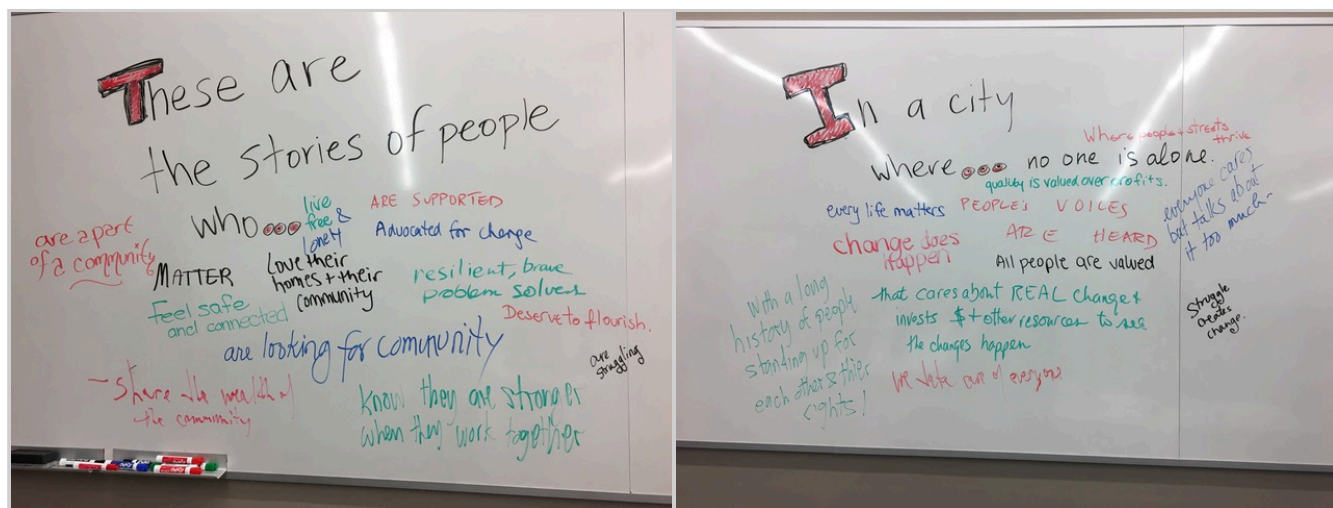 These are
the stories of people
who...
live
free &
lonely
ARE SUPPORTED
Advocated for change
are a part
of a community
MATTER
love their
homes + their
community
resilient, brave
problem solvers
Feel safe
and connected
Deserve to flourish.
are looking for community
are
struggling
- Share the wealth of
the community
know they are stronger
when they work together
In a city
where... no one is alone.
Where people + streets
thrive
quality is valued over profits.
every life matters
PEOPLE'S VOICES
ARE HEARD
everyone cares
but talks about
it too much~
change does
Happen
All people are valued
With a long
history of people
standing up for
each other & thier
rights!
that cares about REAL change +
invests $ + other resources to see
the changes happen
Struggle
creates
change.
We take care of everyone